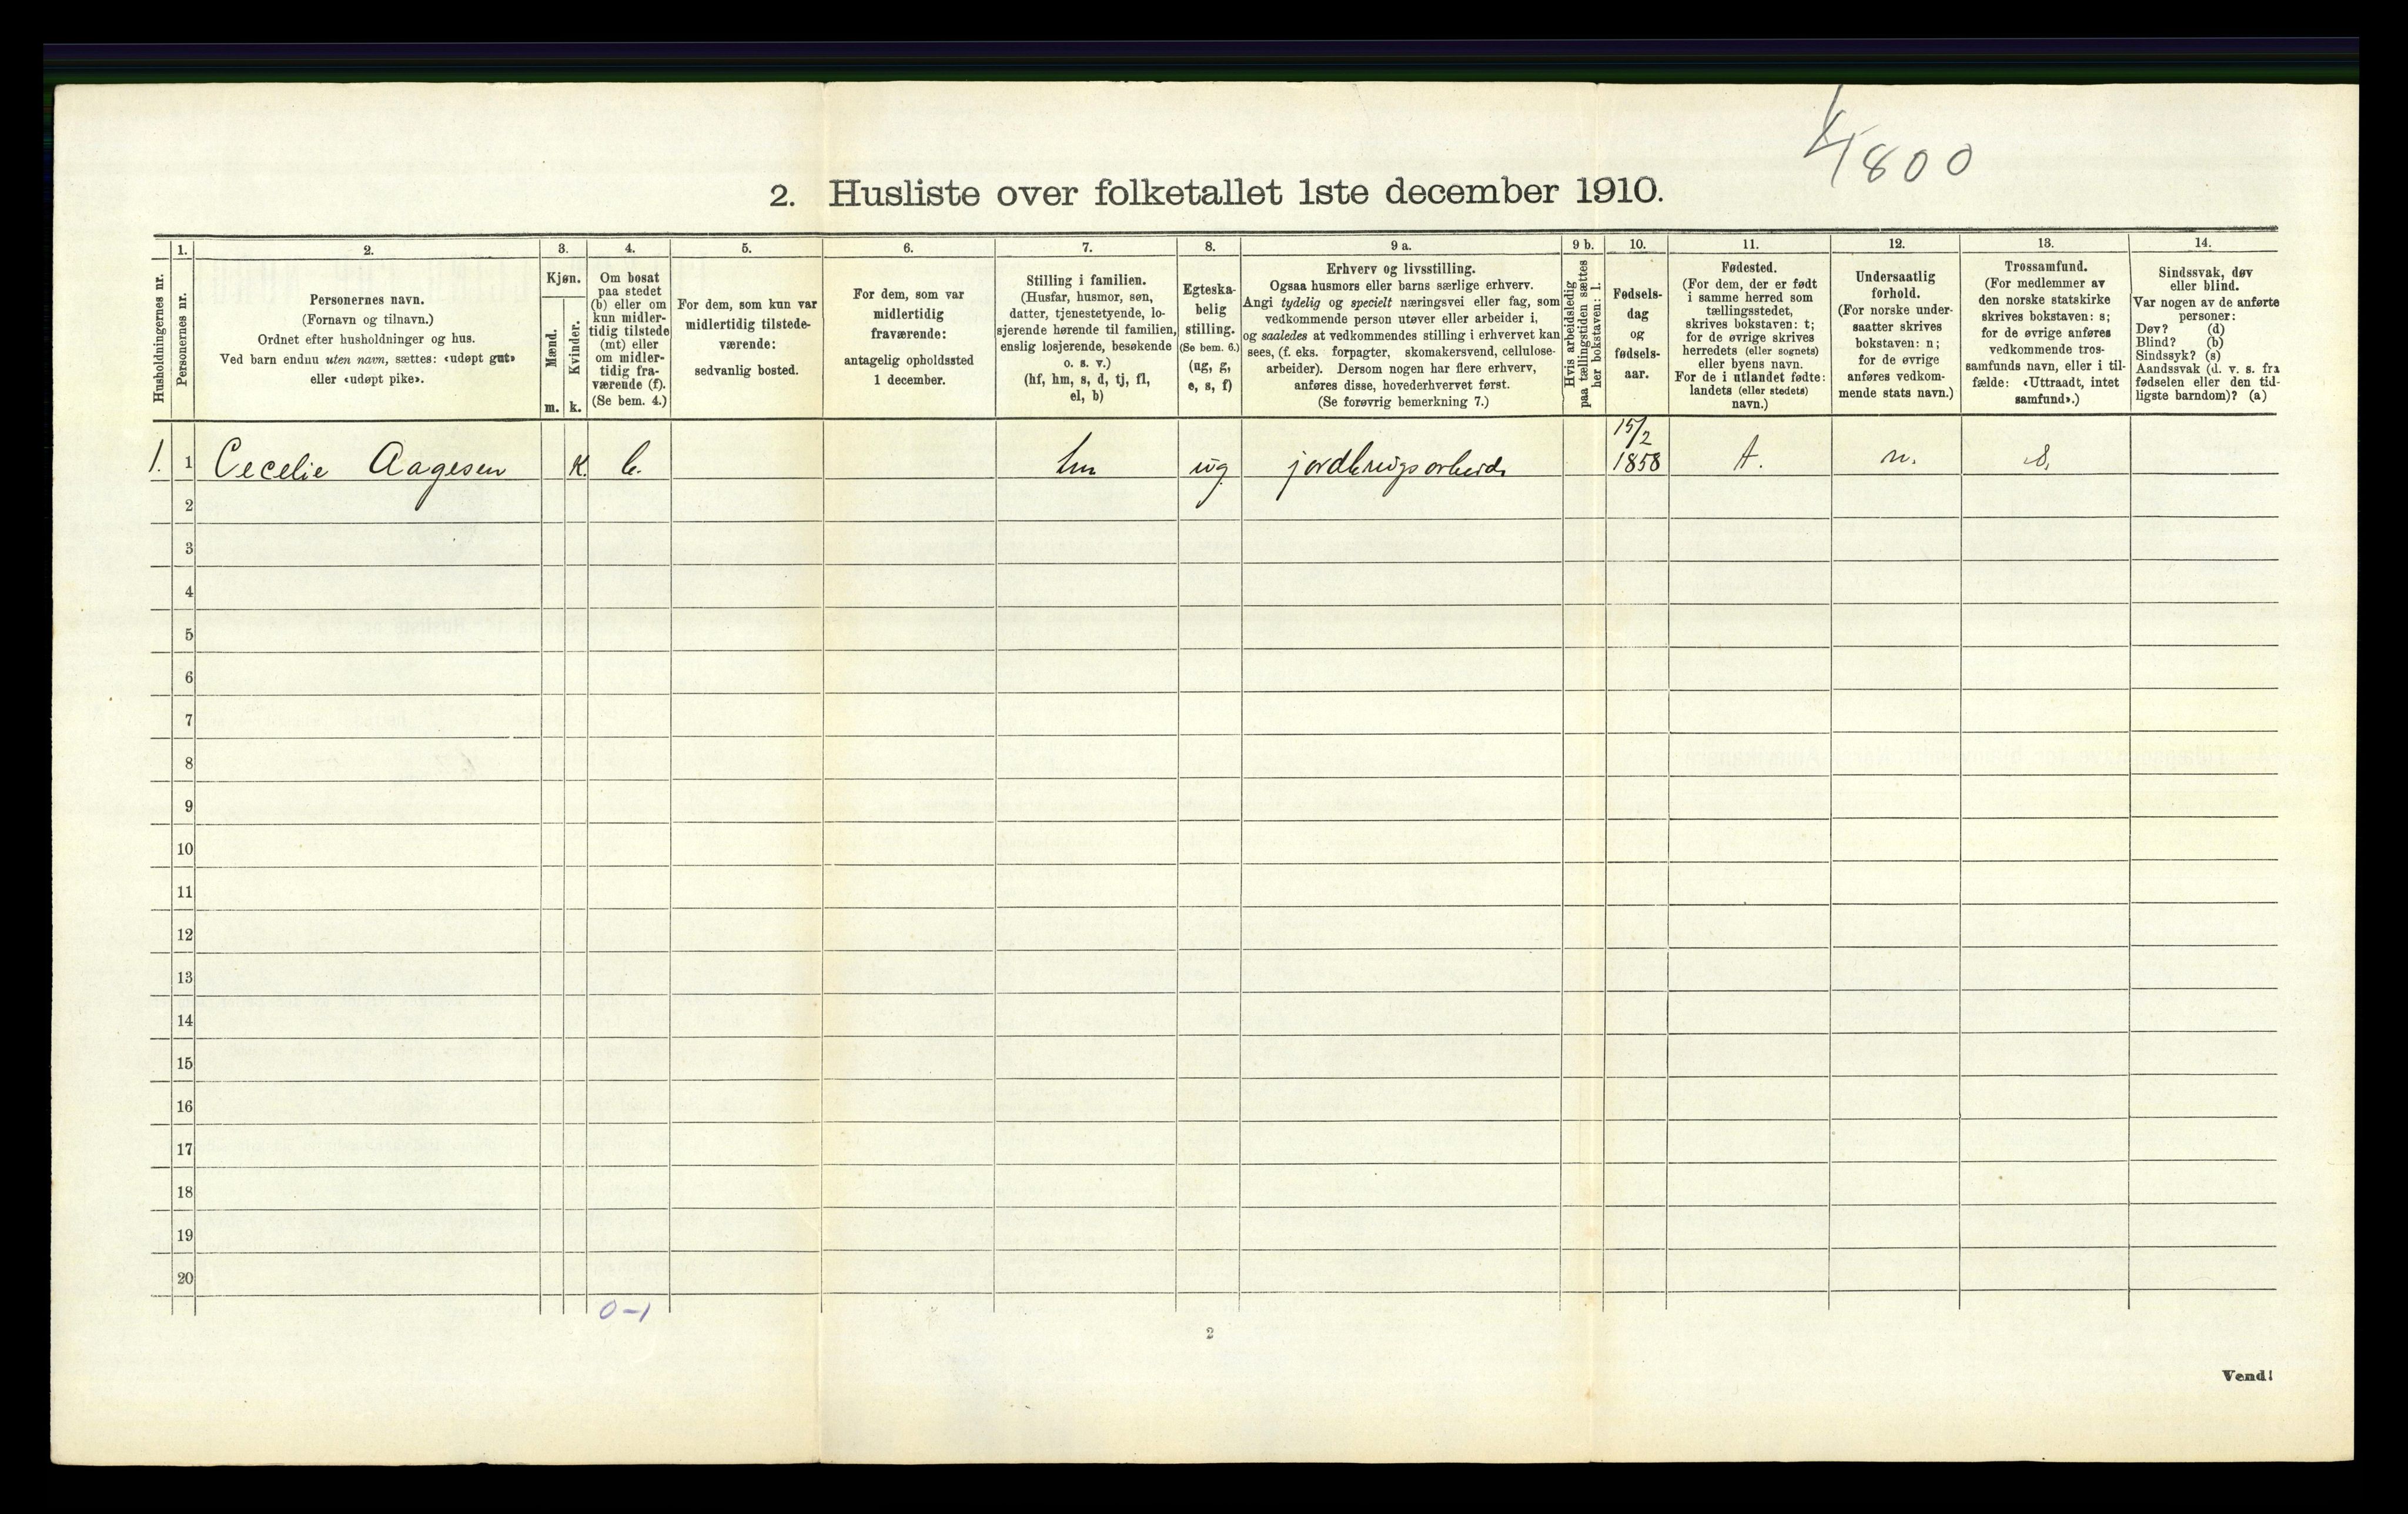 4800
2. Husliste over folketallet 1ste december 1910.
Husholdningernes nr.
1.
Personernes nr.
2.
Personernes navn.
(Fornavn og tilnavn.)
Ordnet efter husholdninger og hus.
Ved barn endnu uten navn, sættes: «udøpt gut»
eller «udøpt pike».
3.
Kjøn.
Mænd.
m.
Kvinder.
k.
4.
Om bosat
paa stedet
(b) eller om
kun midler-
tidig tilstede
(mt) eller
om midler-
tidig fra-
værende (f).
(Se bem. 4.)
5.
For dem, som kun var
midlertidig tilstede-
værende:
sedvanlig bosted.
6.
For dem, som var
midlertidig
fraværende:
antagelig opholdssted
1 december.
7.
Stilling i familien.
(Husfar, husmor, søn,
datter, tjenestetyende, lo-
sjerende hørende til familien,
enslig losjerende, besøkende
o. s. v.)
(hf, hm, s, d, tj, fl,
el, b)
8.
Egteska-
belig
stilling.
(Se bem. 6.)
(ug, g,
e, s, f)
9 a.
Erhverv og livsstilling.
Ogsaa husmors eller barns særlige erhverv.
Angi tydelig og specielt næringsvei eller fag, som
vedkommende person utøver eller arbeider i,
og saaledes at vedkommendes stilling i erhvervet kan
sees, (f. eks. forpagter, skomakersvend, cellulose-
arbeider). Dersom nogen har flere erhverv,
anføres disse, hovederhvervet først.
(Se forøvrig bemerkning 7.)
9 b.
Hvis arbeidsledig
paa tællingstiden sættes
her bokstaven: l.
10.
Fødsels-
dag
og
fødsels-
aar.
11.
Fødested.
(For dem, der er født
i samme herred som
tællingsstedet,
skrives bokstaven: t;
for de øvrige skrives
herredets (eller sognets)
eller byens navn.
For de i utlandet fødte:
landets (eller stedets)
navn.)
12.
Undersaatlig
forhold.
(For norske under-
saatter skrives
bokstaven: n;
for de øvrige
anføres vedkom-
mende stats navn.)
13.
Trossamfund.
(For medlemmer av
den norske statskirke
skrives bokstaven: s;
for de øvrige anføres
vedkommende tros-
samfunds navn, eller i til-
fælde: «Uttraadt, intet
samfund».)
14.
Sindssvak, døv
eller blind.
Var nogen av de anførte
personer:
Døv? (d)
Blind? (b)
Sindssyk? (s)
Aandssvak (d. v. s. fra
fødselen eller den tid-
ligste barndom)? (a)
1. 1 Cecelie Aagesen K. b. hm ug. jordbrugsarbeid. 15/2 1858 t. n. s.
2
3
4
5
6
7
8
9
10
11
12
13
14
15
16
17
18
19
20
0-1
2
Vend!